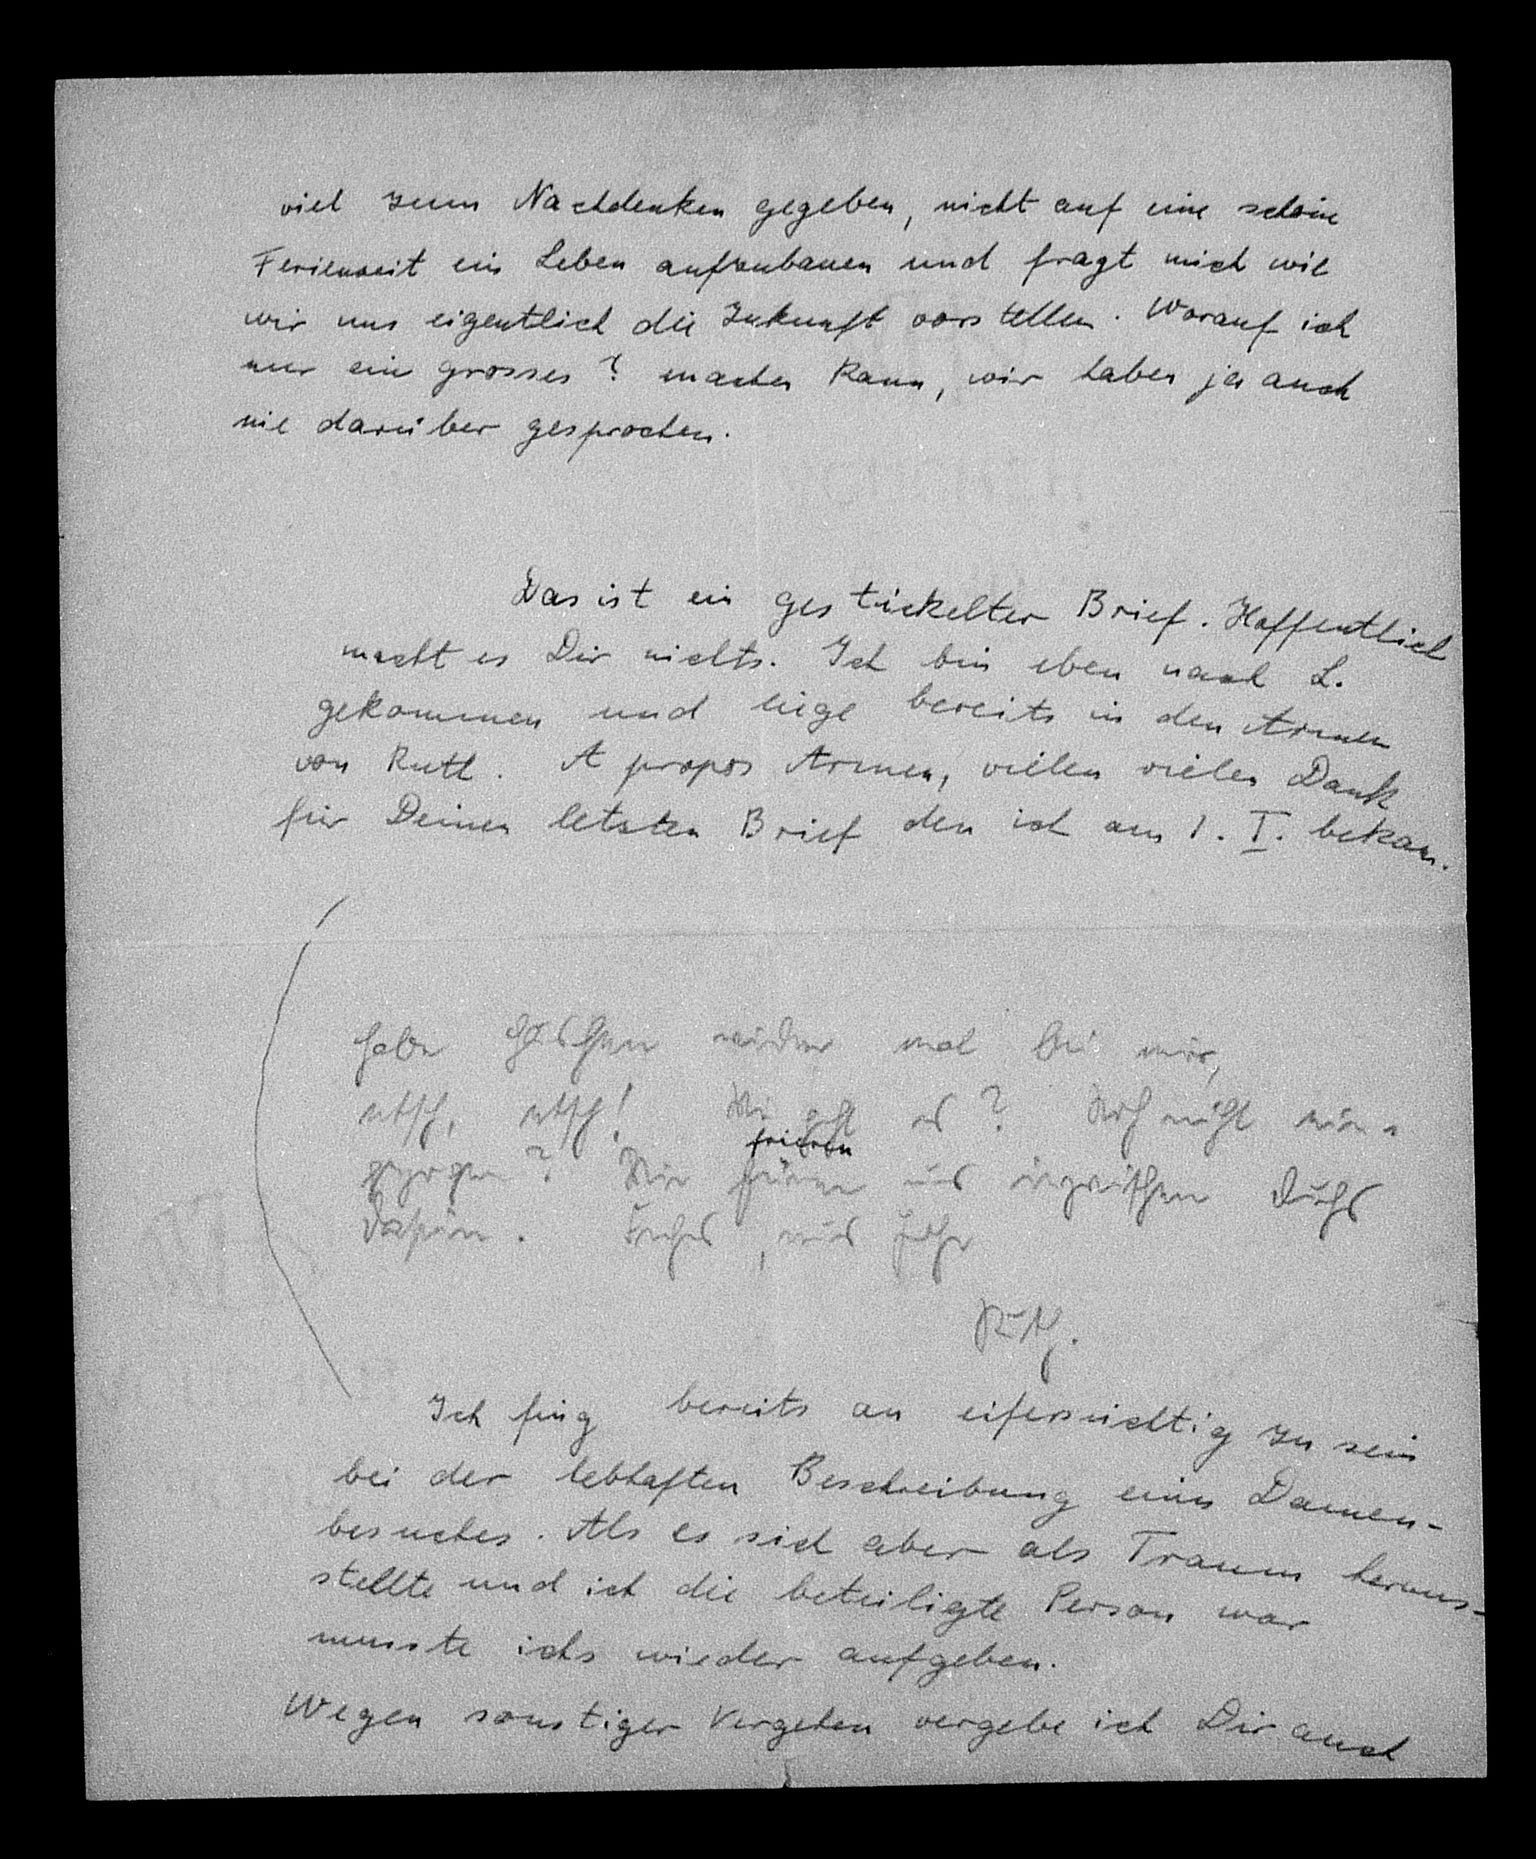 viel zum Nachdenken gegeben, nicht auf eine schöne
Ferienzeit ein Leben aufzubauen und fragt mich wie
wir uns eigentlich die Zukunft vorstellen. Worauf ich
nur ein grosses ? machen kann, wir haben ja auch
nie darüber gesprochen.
Das ist ein gestückelter Brief. Hoffentlich
macht es Dir nichts. Ich bin eben nach L.
gekommen und liege bereits in den Armen
von Ruth. A propos Armen, vielen vielen Dank
für Deinen letzten Brief den ich am 1. I. bekam.
habe wieder mal bei mir,
ätsch, ätsch! Wie geht es? Noch nicht
frieren
? Wir uns inzwischen
Ruth.
Ich fing bereits an eifersüchtig zu sein
bei der lebhaften Beschreibung eines Damen-
besuches. Als es sich aber als Traum heraus-
stellte und ich die beteiligte Person war
musste ichs wieder aufgeben.
Wegen sonstiger Vergehen vergebe ich Dir auch